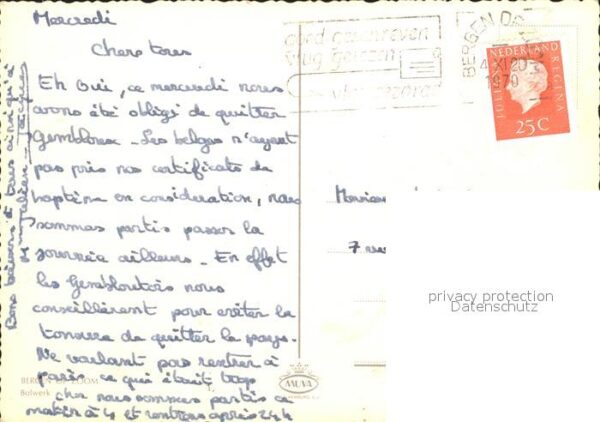 Mercredi
Chers tous
Eh Oui, ce mercredi nous
avons été obligé de quitter
Gembloux - Les belges n'ayant
pas pris nos certificats de
baptême en considération, nous
sommes partis passer la
journée ailleurs - En effet
les Gembloutois nous
conseillèrent pour éviter la
de quitter le pays.
Ne voulant pas rentrer à
Paris ce qui était trop
cher nous sommes partis ce
matin à 4 et rentrons après 24h
Bons baisers à tous ainsi qu'à
Jacques
goed geschreven
vlug gelezen
BERGEN OP
4 XI 20
1979
NEDERLAND
JULIANA REGINA
25C
Monsieur
7 rue
privacy protection
Datenschutz
BERGEN OP ZOOM
Bolwerk
MUVA